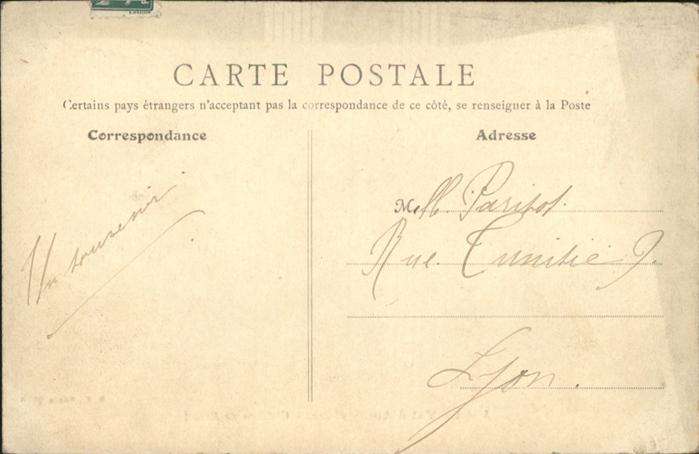 CARTE POSTALE
Certains pays étrangers n'acceptant pas la correspondance de ce côté, se renseigner à la Poste
Correspondance
Adresse
Un souvenir
Mlle Parisot
Rue
Lyon.